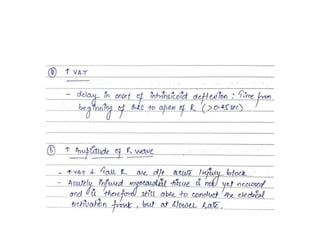 ⓐ ↑ VAT
- delay in onset of intrinsicoid deflexion : Time from
beginning of QRS to apex of R (>0.45 sec)
ⓑ ↑ Amplitude of R wave
- ↑ VAT & Tall R are d/t acute injury block.
- Acutely injured myocardial tissue is not yet necrosed
and is therefore still able to conduct the electrical
activation front, but at slower rate.